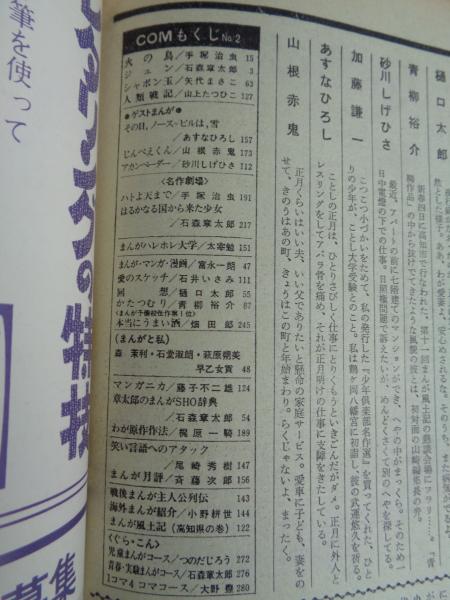 COMもくじ No.2
火の鳥／手塚治虫 15
ジュン／石森章太郎 3
シャボン玉／矢代まさこ 63
人類戦記／山上たつひこ 127
●ゲストまんが●
その日、ノースービルは、雪
／あすなひろし 157
じんべえくん／山根赤鬼 173
アカンベーダー／砂川しげひさ 112
＜名作劇場＞
ハトよ天まで／手塚治虫 191
はるかなる国から来た少女
／石森章太郎 217
まんがハレホレ大学／太宰勉 151
まんが・マンガ・漫画／富永一朗 47
愛のスケッチ／石井いさみ 111
回想／樋口太郎 55
かたつむり／青柳裕介 87
(まんが予備校佳作第1位)
本当にうまい酒／畑田郎 245
(まんがと私)
森茉利・石堂淑朗・萩原朔美
早乙女貢 48
マンガニカ／藤子不二雄 124
章太郎のまんがSHO辞典
／石森章太郎 54
わが原作作法／梶原一騎 189
笑い言語へのアタック
／尾崎秀樹 147
まんが月評／斉藤次郎 156
戦後まんが主人公列伝 143
海外まんが紹介／小野耕世 144
まんが風土記(高知県の巻) 122
＜ぐら・こん＞
児童まんがコース／つのだじろう 272
青春・実験まんがコース／石森章太郎 276
1コマ4コマコース／大野豊 280
樋口太郎
青柳裕介
新春四日に高知市で行なわれた、第十一回まんが風土記の懇談会場にフラリ……。『青
柳作品』の中から抜けでてきたような風貌の彼とは、初対面の山崎編集長の弁。
砂川しげひさ
最近、アパートの前に七階建てのマンションができ、へやの中がまっくら。そのため一
日中電燈の下での仕事。日照権問題で訴えたいが、めんどくさくて別のへやを探してる。
加藤謙一
こつこつ小づかいをためて、私の発行した『少年倶楽部名作選』を買ってくれた、ひと
りの少年が、ことし大学受験とのこと。私は鶴ヶ岡八幡宮に初詣し、彼の武運悠久を祈る。
あすなひろし
ことしの正月は、ひとりさびしく仕事にとりくもうといきごんだがダメ。正月に外人と
レスリングをしてアバラ骨を痛め、それが正月明けの仕事に支障をきたしている。
山根赤鬼
正月くらいはいい夫、いい父でありたいと懸命の家庭サービス。愛車に子ども、妻をの
せて、きのうはあの町、きょうはこの町と年始まわり。らくじゃないなぁ、まったく。
筆を使って
の特技
募集